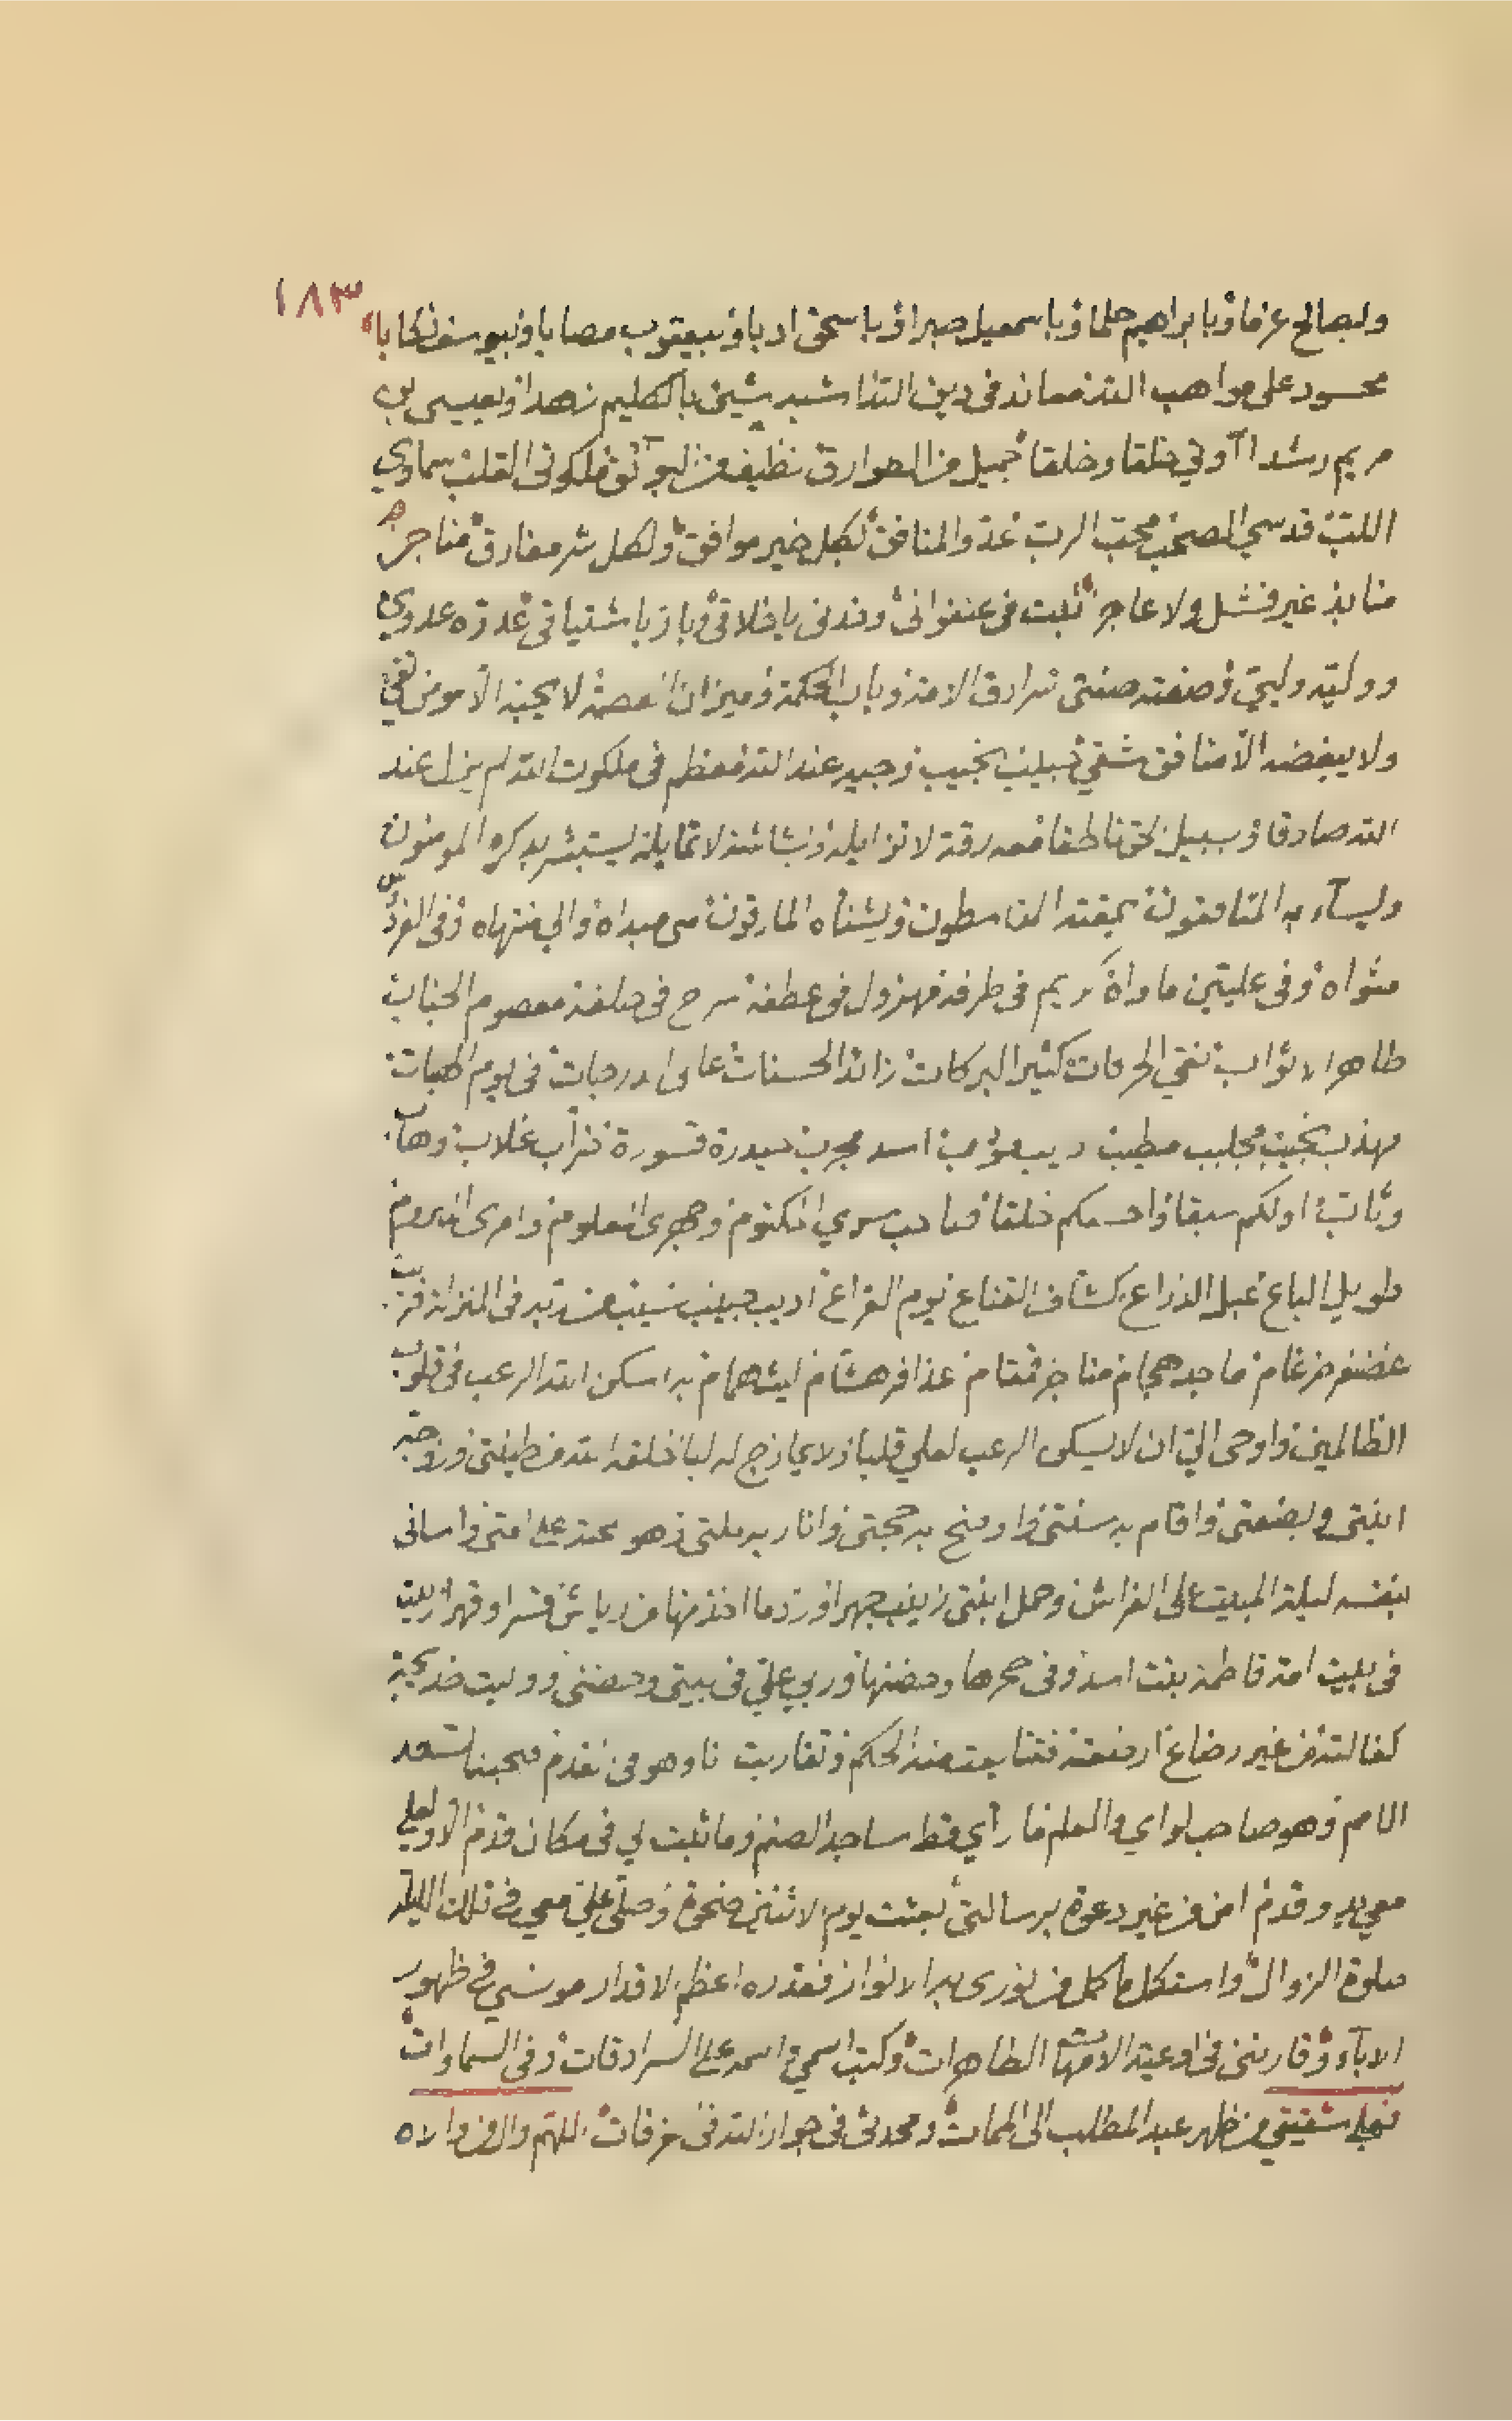 ١٨٣
وبصالح عزما وبابراهيم حلما وباسمعيل صبرا وباسحق ادبا وبيعقوب مصابا وبيوسف تكذابا
محسود على مواهب الله معاند في دين الله اشبه شيئ بالكليم زهدا وبعيسى بن
مريم رشدا اوتي خلقا وخلقا جميل من الطوارق نظيف من البوائق ملكوتي القلب سماوي
اللب قدسي الصحب محب الرب عدو المنافق لكل خير موافق ولكل شر مفارق مناجز
منابذ غير فشل ولا عاجز نبت في عنفواني وغذي باخلاقي وبارز باشتياقي عدوه عدوي
ووليه وليي وصفته صفتي سرادق الامة وباب الحكمة وميزان العصمة لا يحبه الا مومن تقي
ولا يبغضه الا منافق شقي حبيب نجيب وجيه عند الله معظم في ملكوت الله لم يزل عند
الله صادقا وبسبيل الحق ناطقا معه رقة لا تزايله وبشاشة لا تمايله يستبشر بذكره المومنون
ويساء به المنافقون يمقته القاسطون ويشناه المارقون من مبداه والى منتهاه وفي الفردس
مثواه وفي عليين ماواه كريم في طرفه مهزول في عطفه سرح في خلقه معصوم الجناب
طاهر الاثواب نقي الحركات كثير البركات زائد الحسنات عالى الدرجات في يوم الهبات
مهذب نجيب مجلبب مطيب اديب مؤدب اسد مجرب حيدرة قسورة ضراب غلاب وهاب
وثاب اولكم سبقا واحسنكم خلقا صاحب سري المكتوم وجهري المعلوم وامري المبروم
طويل الباع عبل الذراع كشاف القناع يوم القراع اديب حبيب نسيب من ربه في المنزلة قريب
غضنفر ضرغام ماجد همام مناجز قمقام عذافر هشام ليث همام به اسكن الله الرعب في قلوب
الظالمين واوحى الي ان لا يسكن الرعب لعلي قلبا ولا يمازج له لبا خلقه الله من طينتي وزوجه
ابنتي وبضعتي واقام به سنتي واوضح به حجتي وانار به ملتي وهو محنة على امتي واساني
بنفسه ليلة المبيت على الفراش وحمل ابنتي زينب جهرا ورد ما اخذ منها من رياش قسرا وقهرا ربيت
في بيت امه فاطمة بنت اسد وفي حجرها وحضنها وربي علي في بيتي وحضني ووليت خديجة
كفالته من غير رضاع ارضعته فتتابعت منه الحكم وتقاربت انا وهو من تقدم صحبنا اسعد
الامم وهو صاحب لواي والعلم ما رأي قط ساجد الصنم وما ثبت لي في مكان قدم الا ولعلي
معي يد وقدم امن من غير دعوة برسالتي بعثت يوم الاثنين ضحوة وصلى علي معي في تلك الليلة
صلوة الزوال واستكمل ما كمل من نوري به الانوار فقدره اعظم الاقدار مونسي في ظهور
الاباء وقارنني في اوعية الامهات الطاهرات وكتب اسمي واسمه على السرادقات وفي السماوات
فعلي شقيقي من ظهر عبد المطلب الى الممات ومحدثي في جوار الله في غرفات اللهم وال من والاه